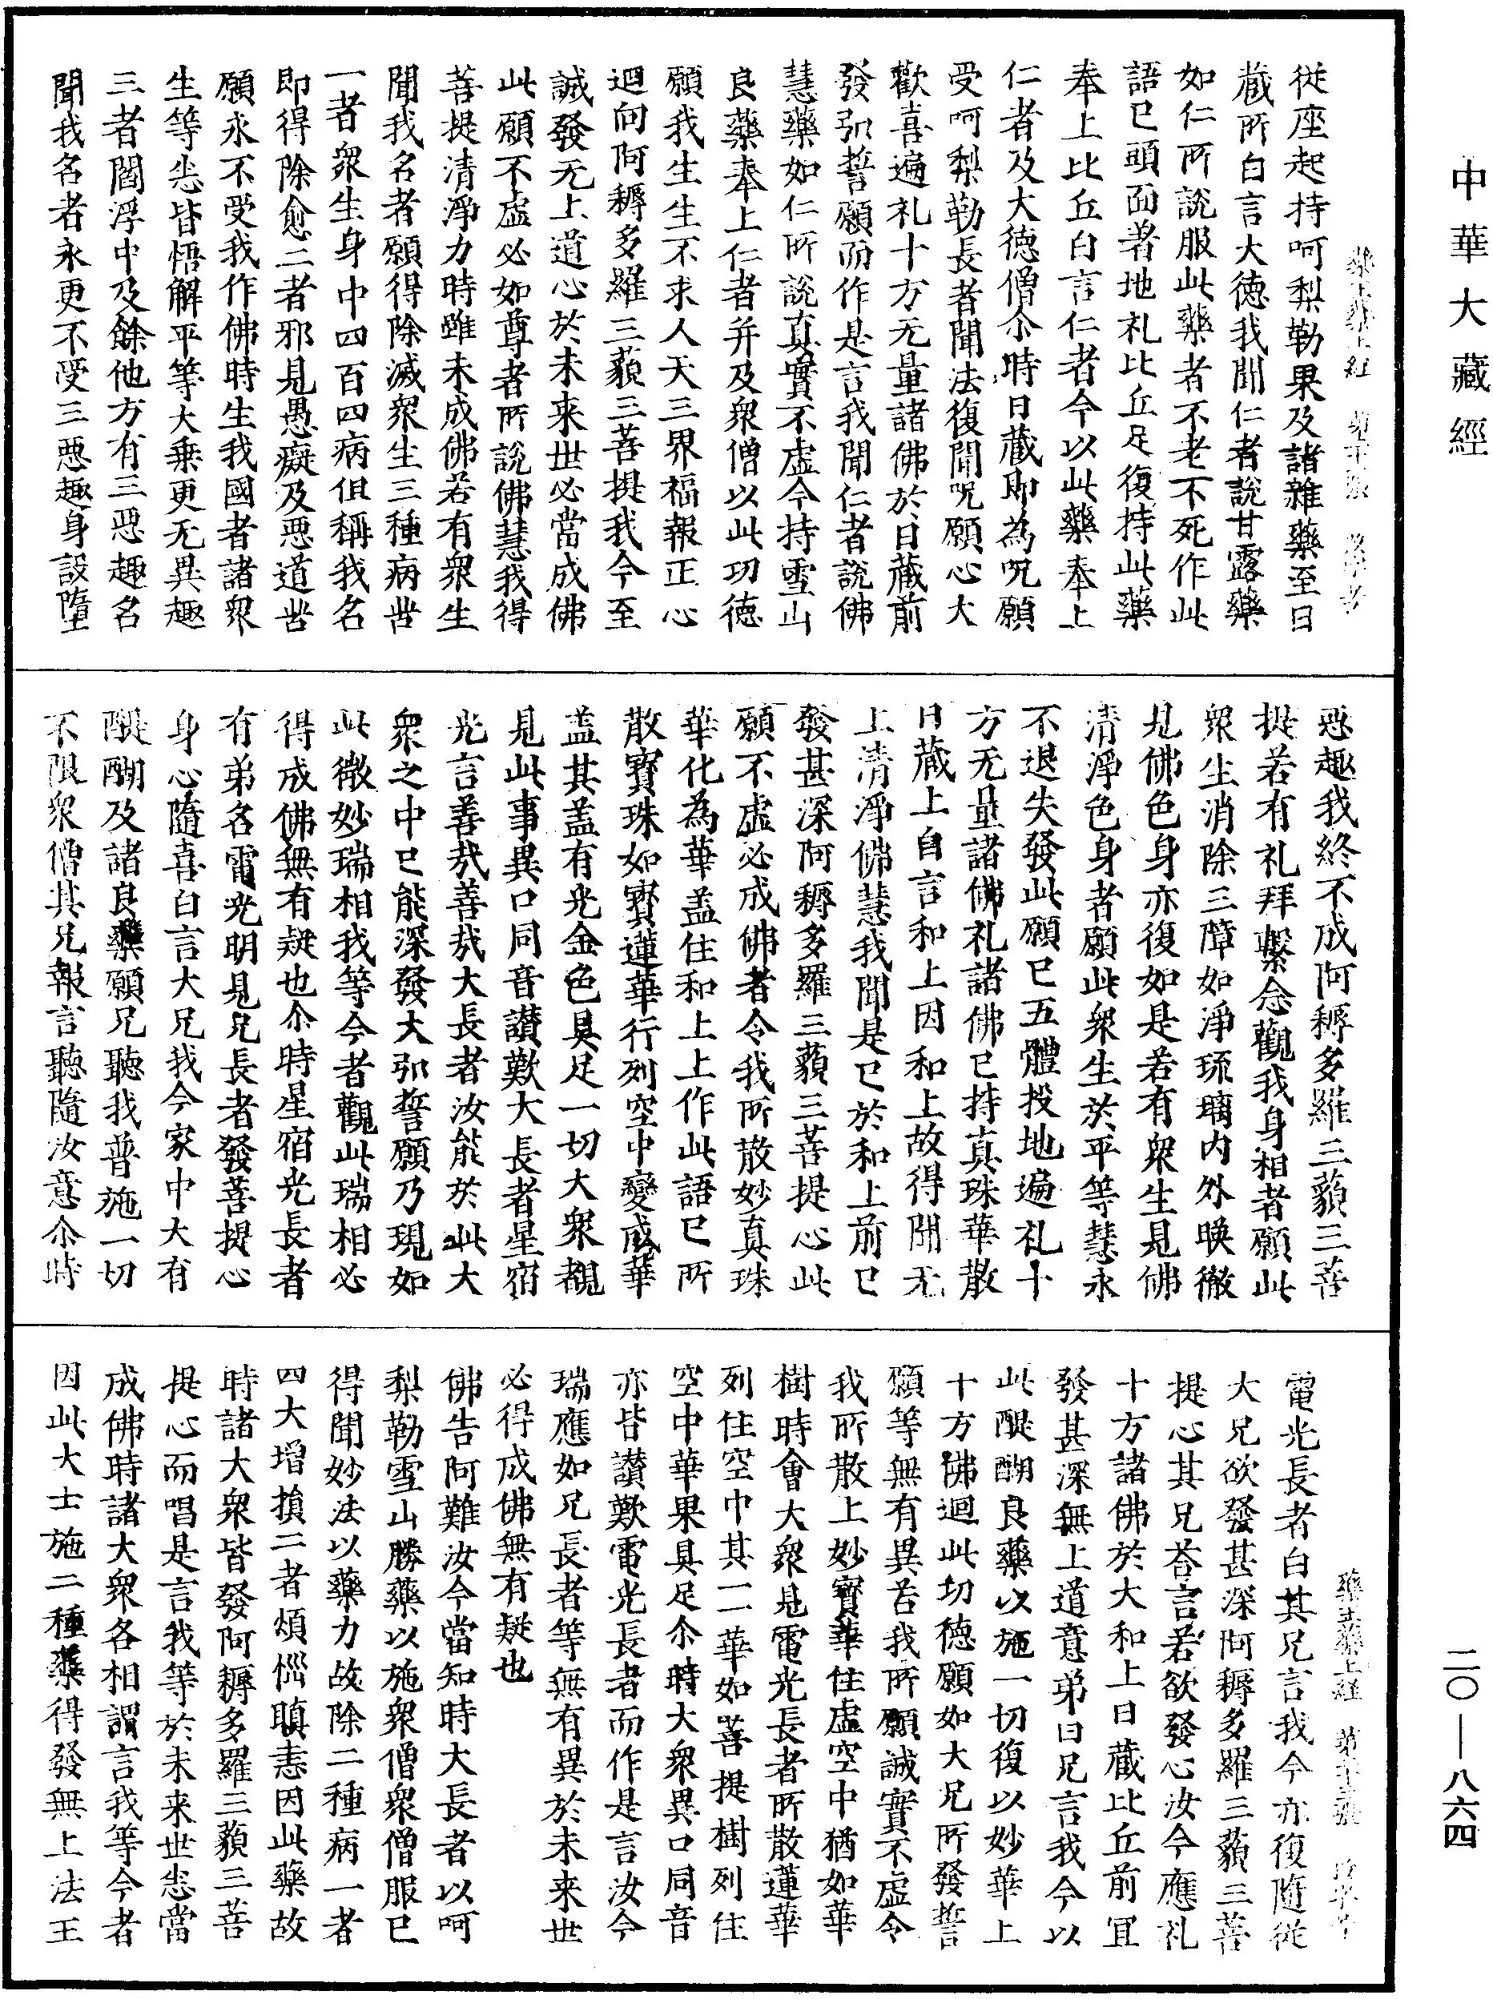 中華大藏經
從座起持呵梨勒果及諸雜藥至日
藏所白言大德我聞仁者說甘露藥
如仁所說服此藥者不老不死作此
語已頭面著地礼比丘足復持此藥
奉上比丘白言仁者今以此藥奉上
仁者及大德僧尒時日藏即為呪願
受呵梨勒長者聞法復聞呪願心大
歡喜遍礼十方无量諸佛於日藏前
發弘誓願而作是言我聞仁者說佛
慧藥如仁所說真實不虛今持雪山
良藥奉上仁者并及衆僧以此功德
願我生生不求人天三界福報正心
迴向阿耨多羅三藐三菩提我今至
誠發无上道心於未来世必當成佛
此願不虛必如尊者所說佛慧我得
菩提清淨力時雖未成佛若有衆生
聞我名者願得除滅衆生三種病苦
一者衆生身中四百四病但稱我名
即得除愈二者邪見愚癡及惡道苦
願永不受我作佛時生我國者諸衆
生等悉皆悟解平等大乘更无異趣
三者閻浮中及餘他方有三惡趣名
聞我名者永更不受三惡趣身設墮
惡趣我終不成阿耨多羅三藐三菩
提若有礼拜繫念觀我身相者願此
衆生消除三障如淨琉璃內外暎徹
見佛色身亦復如是若有衆生見佛
清淨色身者願此衆生於平等慧永
不退失發此願已五體投地遍礼十
方无量諸佛礼諸佛已持真珠華散
日藏上自言和上因和上故得聞无
上清淨佛慧我聞是已於和上前已
發甚深阿耨多羅三藐三菩提心此
願不虛必成佛者令我所散妙真珠
華化為華盖住和上上作此語已所
散寶珠如寶蓮華行列空中變成華
盖其盖有光金色具足一切大衆覩
見此事異口同音讃歎大長者星宿
光言善哉善哉大長者汝能於此大
衆之中已能深發大弘誓願乃現如
此微妙瑞相我等今者觀此瑞相必
得成佛無有疑也尒時星宿光長者
有弟名電光明見兄長者發菩提心
身心隨喜白言大兄我今家中大有
醍醐及諸良藥願兄聽我普施一切
不限衆僧其兄報言聽隨汝意尒時
電光長者白其兄言我今亦復隨從
大兄欲發甚深阿耨多羅三藐三菩
提心其兄荅言若欲發心汝今應礼
十方諸佛於大和上日藏比丘前宜
發甚深無上道意弟白兄言我今以
此醍醐良藥以施一切復以妙華上
十方佛迴此功德願如大兄所發誓
願等無有異若我所願誠實不虛令
我所散上妙寶華住虛空中猶如華
樹時會大衆見電光長者所散蓮華
列住空中其一一華如菩提樹列住
空中華果具足尒時大衆異口同音
亦皆讃歎電光長者而作是言汝今
瑞應如兄長者等無有異於未来世
必得成佛無有疑也
佛告阿難汝今當知時大長者以呵
梨勒雪山勝藥以施衆僧衆僧服已
得聞妙法以藥力故除二種病一者
四大增損二者煩惱瞋恚因此藥故
時諸大衆皆發阿耨多羅三藐三菩
提心而唱是言我等於未来世悉當
成佛時諸大衆各相謂言我等今者
因此大士施二種藥得發無上法王
二〇—八六四